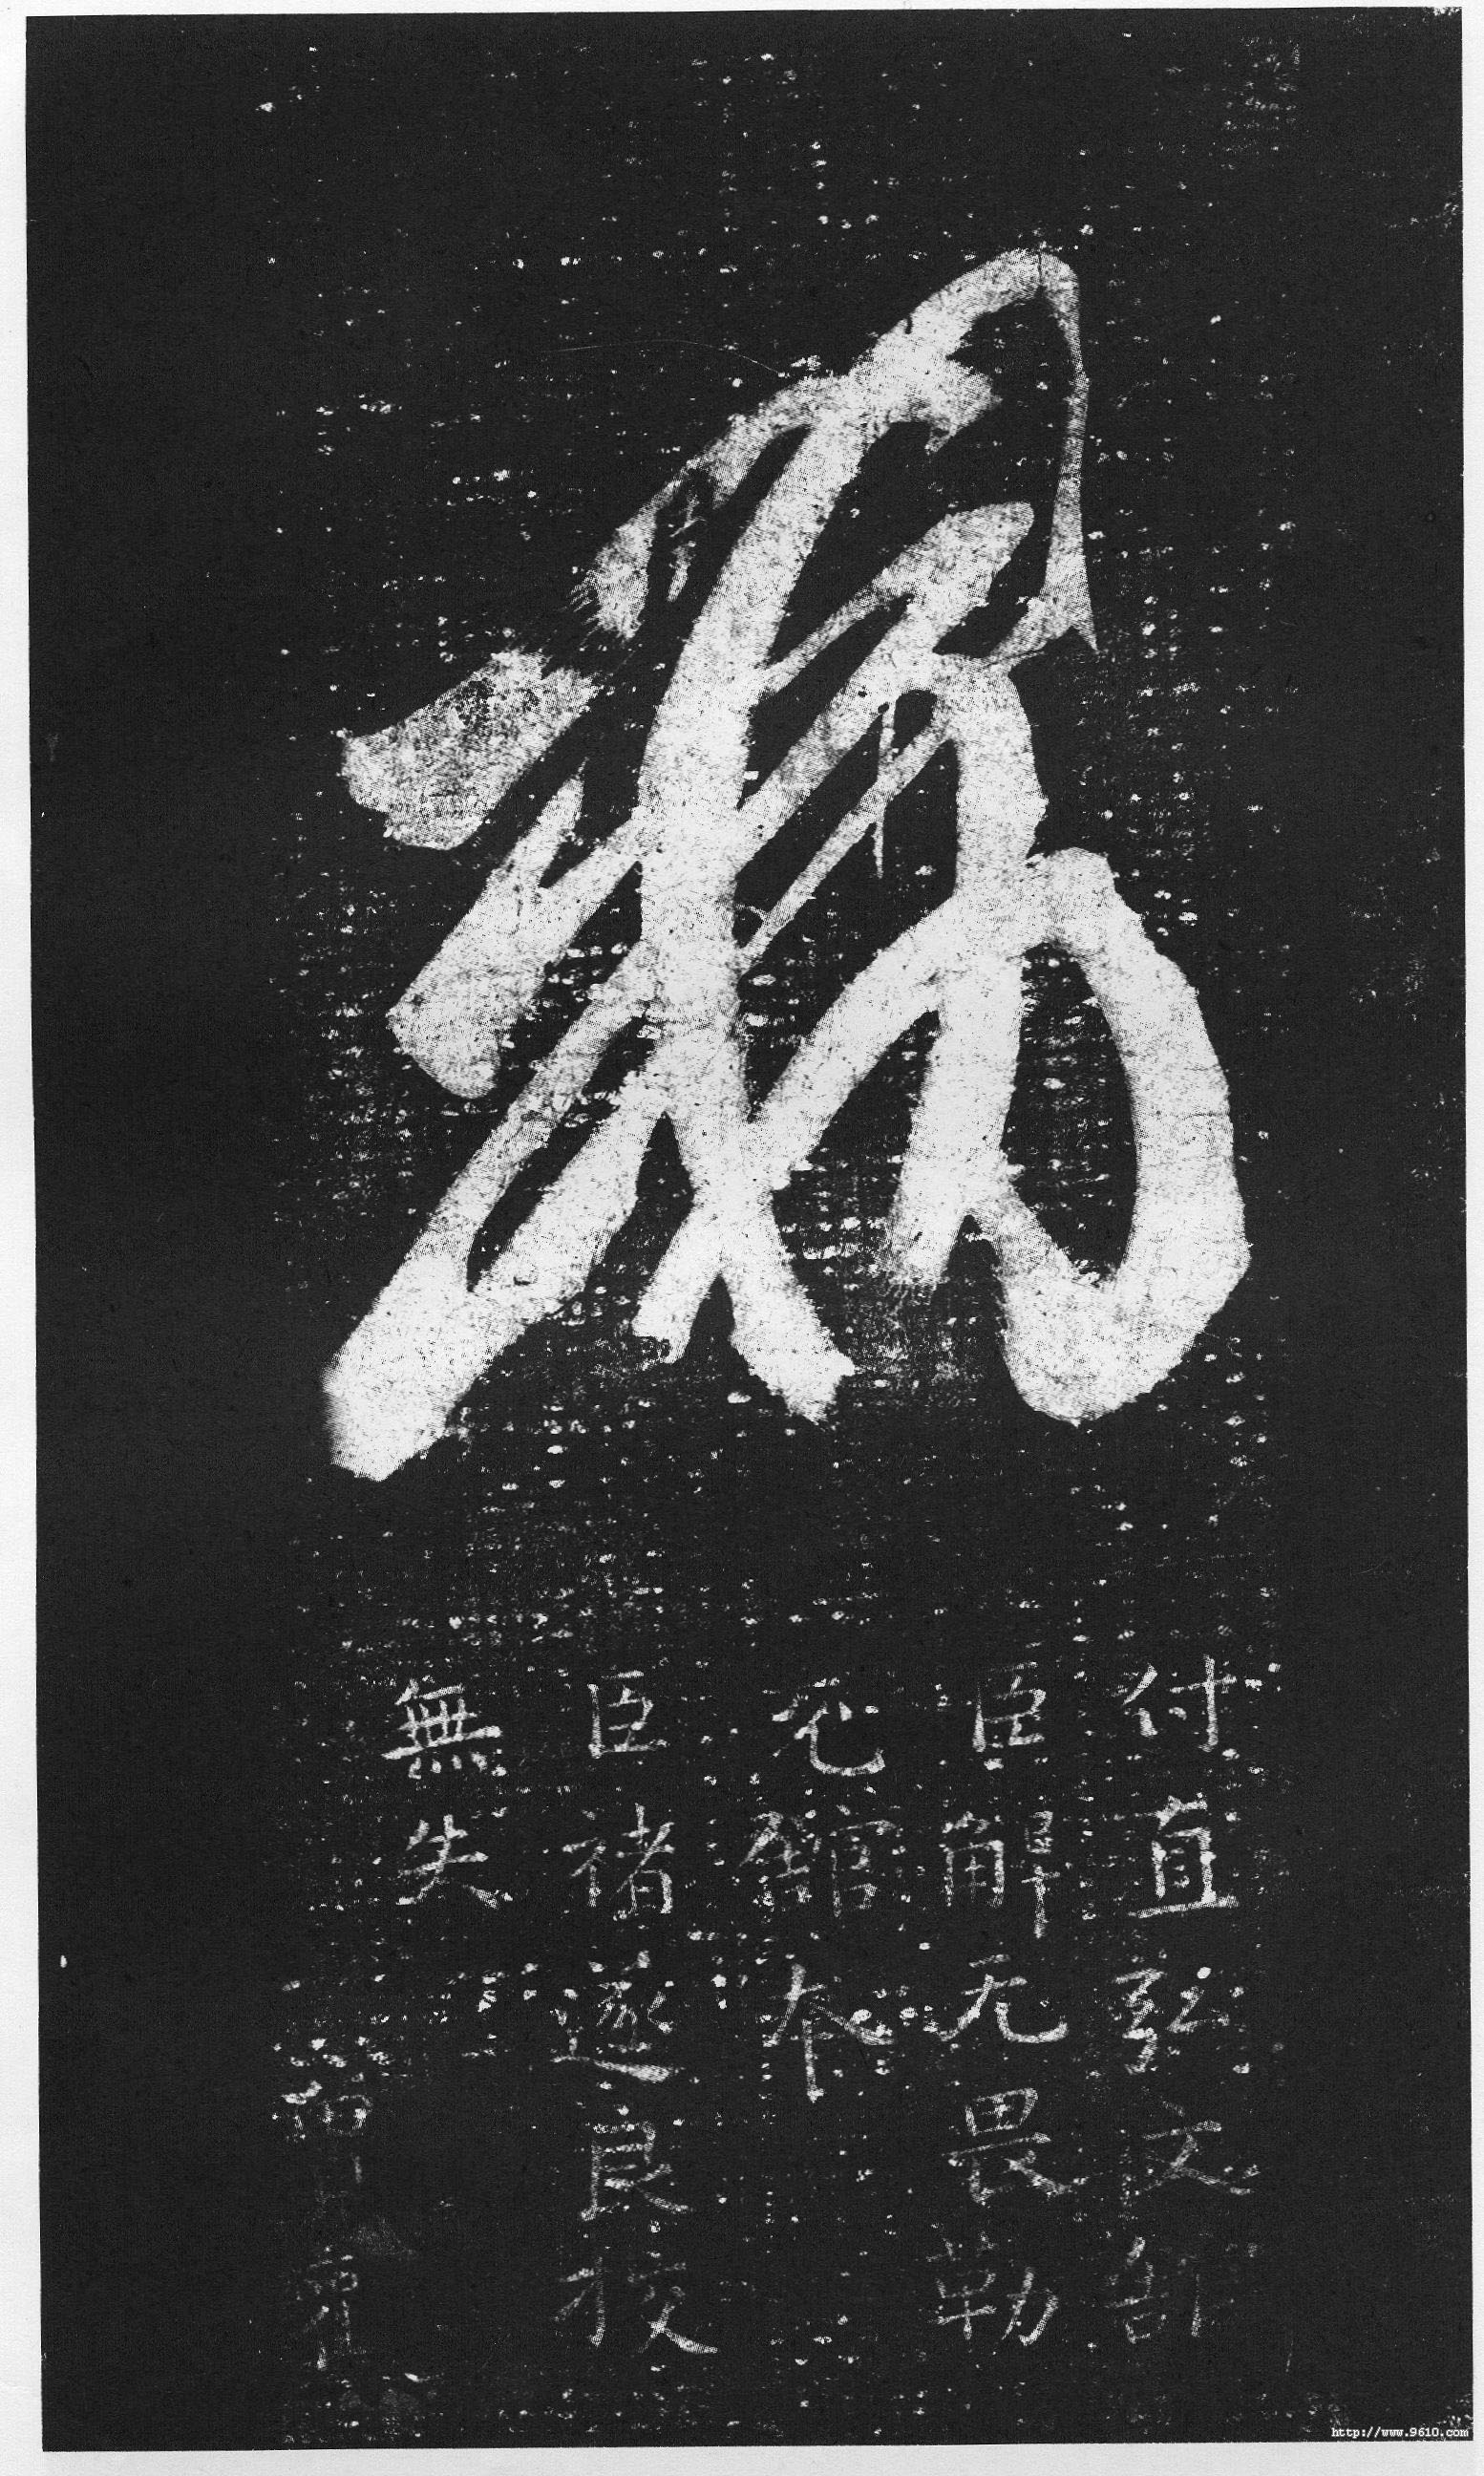 敕
付直弘文館
臣解无畏勒
充館本
臣褚遂良校
無失
http://www.9610.com